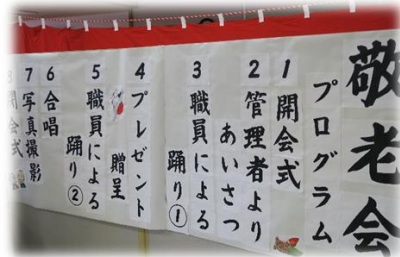 敬老会
プログラム
1 開会式
2 管理者より
あいさつ
3 職員による
踊り①
4 プレゼント
贈呈
5 職員による
踊り②
6 合唱
7 写真撮影
8